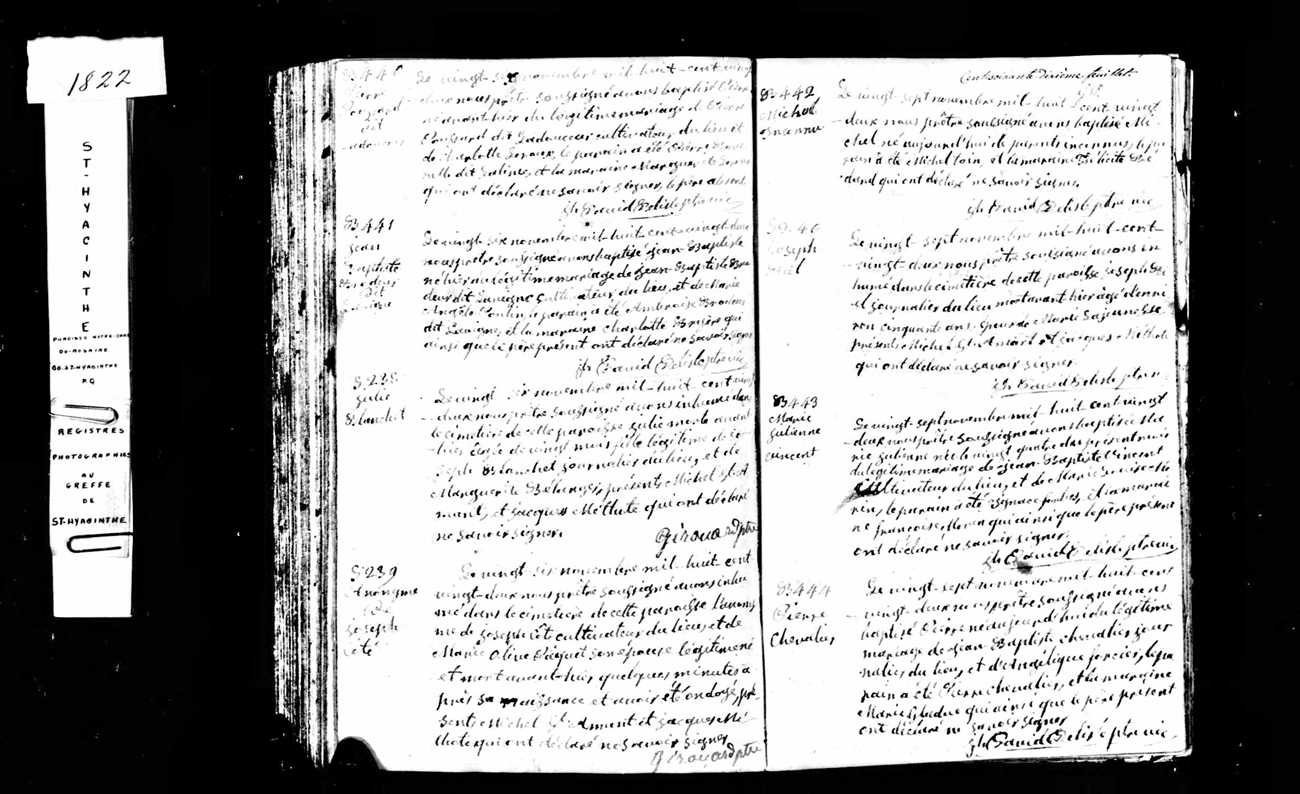 1822
ST-HYACINTHE
PAROISSE NOTRE-DAME
DU-ROSAIRE
CO. ST-HYACINTHE
P.Q
REGISTRES
PHOTOGRAPHIES
AU
GREFFE
DE
ST-HYACINTHE
B440
Pierre
dit
Le vingt-six novembre mil-huit-cent-vingt
-deux nous prêtre soussigné avons baptisé Pierre
né avant-hier du légitime mariage de Pierre
dit Ladouceur cultivateur du lieu et
de Charlotte le parain a été Pierre
dit et la maraine Marguerite
qui ont déclaré ne savoir signer, le père absent
Jh David Delisle ptre vic
B441
Jean
Baptiste
dit
Le vingt-six novembre mil-huit-cent-vingt-deux
nous prêtre soussigné avons baptisé Jean-Baptiste
né hier du légitime mariage de Jean-Baptiste
dit Lavigne cultivateur du lieu, et de Marie
Angèle le parain a été Ambroise
dit Lavigne, et la maraine Charlotte qui
ainsi que le père présent ont déclaré ne savoir signer
Jh David Delisle ptre vic
S.238
Julie
Blanchet
Le vingt-six novembre mil-huit-cent vingt
-deux nous prêtre soussigné avons inhumé dans
le cimetière de cette paroisse Julie morte avant
-hier âgée de vingt mois fille légitime de Jo-
seph Blanchet journalier du lieu, et de
Marguerite Bélanger, présents Michel St. A-
mant, et Jacques Méthote qui ont déclaré
ne savoir signer.
Girouard ptre
S.239
Anonyme
de
Joseph
Côté
Le vingt six novembre mil-huit-cent-
vingt-deux nous prêtre soussigné avons inhu-
mé dans le cimetière de cette paroisse l'anony-
me de Joseph Côté cultivateur du lieu, et de
Marie Olive Paquet son épouse légitime né
et mort avant-hier quelques minutes a-
près sa naissance et avoir été ondoyé, pré-
sents Michel St. Amant et Jacques Mé-
thote qui ont déclaré ne savoir signer
Girouard ptre
Cent soixante dixième feuillet.
B442
Michel
Inconnu
Le vingt-sept novembre mil-huit-cent vingt
-deux nous prêtre soussigné avons baptisé Mi-
chel né aujourd'hui de parents inconnus, le pa-
rain a été Michel et la maraine
qui ont déclaré ne savoir signer.
Jh David Delisle ptre vic
S.240
Joseph
Le vingt-sept novembre mil-huit-cent-
-vingt-deux nous prêtre soussigné avons in-
humé dans le cimetière de cette paroisse Joseph
journalier du lieu mort avant hier âgé d'envi-
ron cinquante ans époux de Marie Lajeunesse
présents Michel St. Amant et Jacques Méthote
qui ont déclaré ne savoir signer
Jh David Delisle ptre vic
B443
Marie
Julienne
Vincent
Le vingt-sept novembre mil-huit-cent vingt
-deux nous prêtre soussigné avons baptisé Ma-
rie Julienne née le vingt quatre du présent mois
du légitime mariage de Jean-Baptiste Vincent
cultivateur du lieu, et de Marie
le parain a été Ignace et la marai-
ne Françoise qui ainsi que le père présent
ont déclaré ne savoir signer
Jh David Delisle ptre vic
B444
Pierre
Chevalier
Le vingt-sept novembre mil-huit-cent
-vingt-deux nous prêtre soussigné avons
baptisé Pierre né aujourd'hui du légitime
mariage de Jean-Baptiste Chevalier jour-
nalier du lieu, et d'Angélique Forcier, le pa-
rain a été Pierre Chevalier, et la maraine
Marie qui ainsi que le père présent
ont déclaré ne savoir signer
Jh David Delisle ptre vic